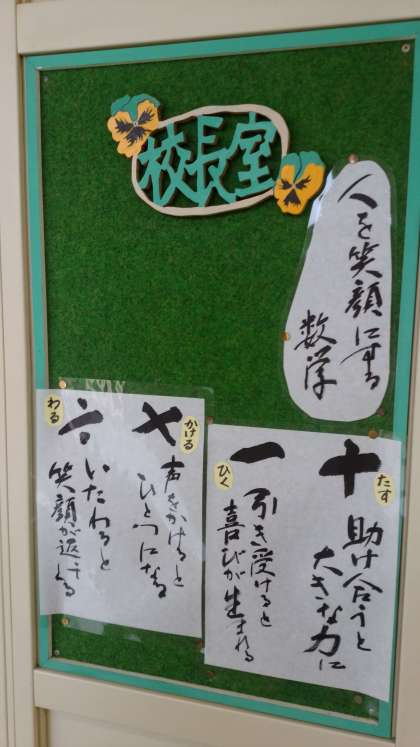 校長室
人を笑顔にする
数学
たす
＋
助け合うと
大きな力に
ひく
－
引き受けると
喜びが生まれる
かける
×
声をかけると
ひとつになる
わる
÷
いたわると
笑顔が返ってくる